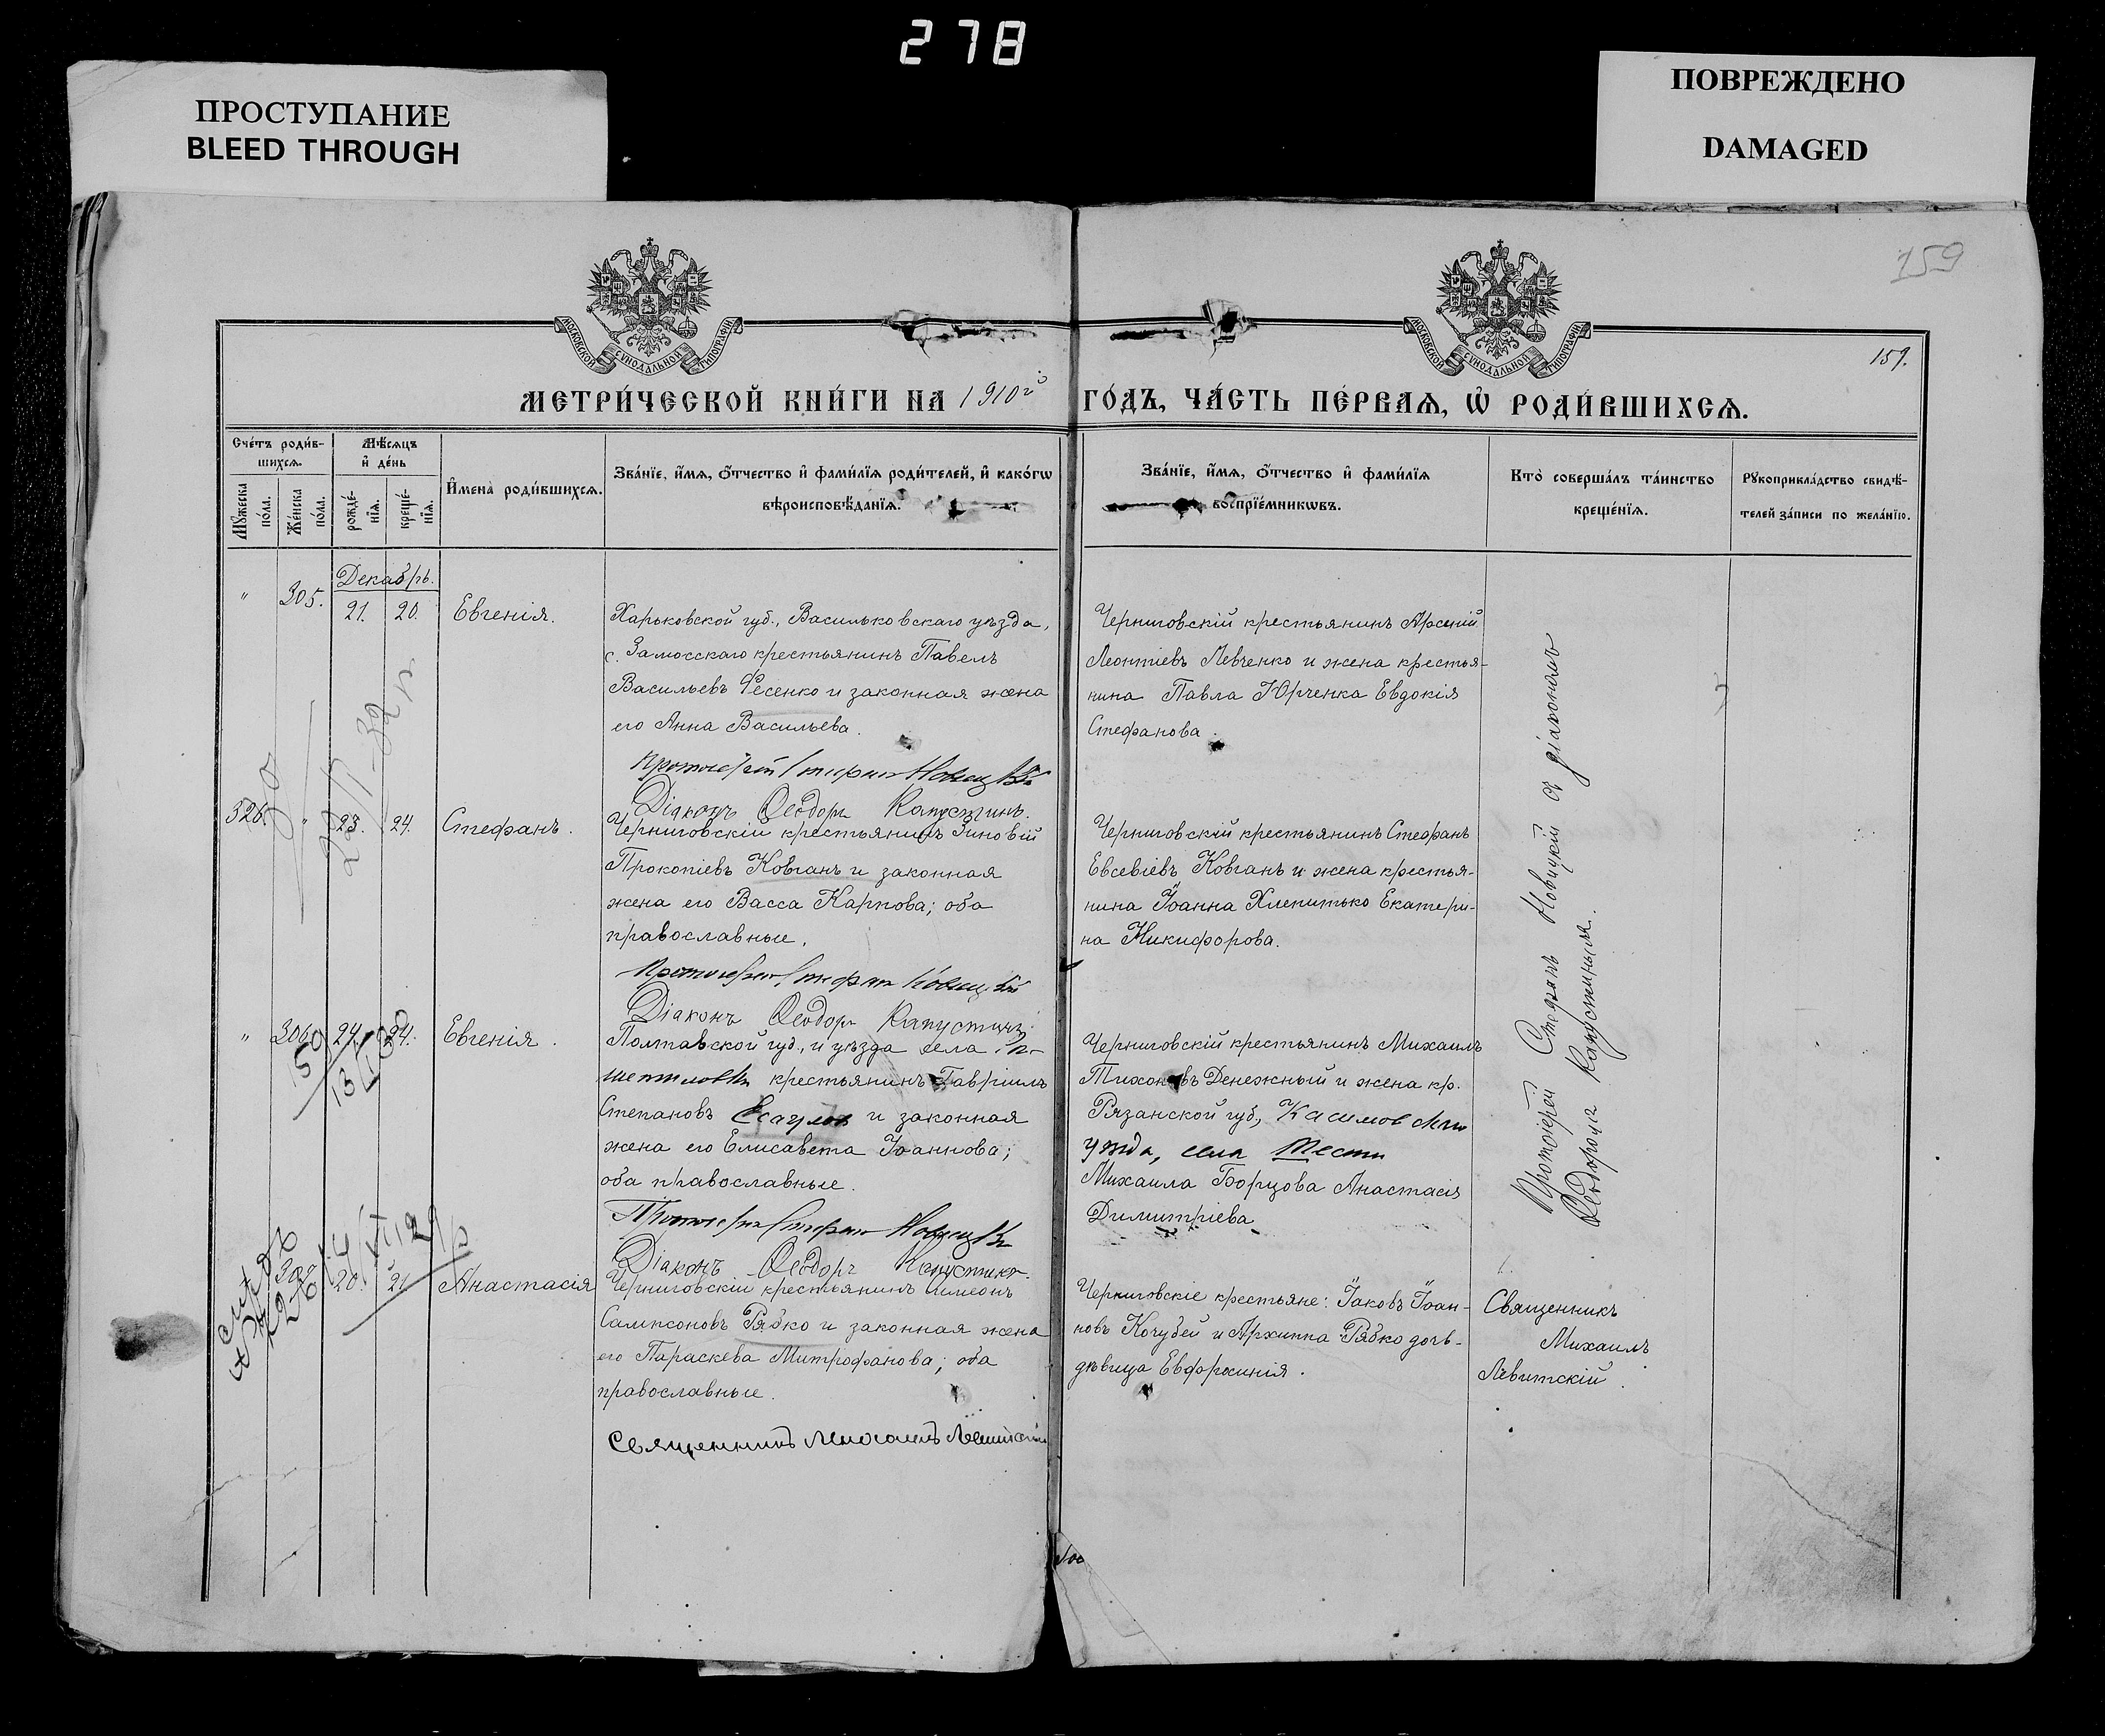 278
ПРОСТУПАНИЕ
BLEED THROUGH
ПОВРЕЖДЕНО
DAMAGED
159
159.
МОСКОВСКОЙ СѴНОДАЛЬНОЙ ТИПОГРАФІИ
МОСКОВСКОЙ СѴНОДАЛЬНОЙ ТИПОГРАФІИ
МЕТРИ́ЧЕСКОЙ КНИ́ГИ НА 1910 го́дъ, ЧА́СТЬ ПЕ́РВАѦ, Ѡ҆ РОДИ́ВШИХСѦ.
Сче́тъ роди́в-
шихсѧ.
Мѣ́сѧцъ
и҆ де́нь
Мꙋ́жеска
по́ла.
Же́нска
по́ла.
рожде́-
нїѧ.
креще́-
нїѧ.
И҆мена̀ роди́вшихсѧ.
Зва́нїе, и҆́мѧ, ѻ҆́тчество и҆ фами́лїѧ роди́телей, и҆ како́гѡ
вѣроисповѣ́данїѧ.
Зва́нїе, и҆́мѧ, ѻ҆́тчество и҆ фами́лїѧ
воспрїе́мникѡвъ.
Кто̀ соверша́лъ та́инство
креще́нїѧ.
Рꙋкоприкла́дство свидѣ́-
телей за́писи по жела́нїю.
Декабрь.
" 305. 21. 20. Евгенія.
Харьковской губ., Васильковскаго уѣзда,
с. Замосскаго крестьянинъ Павелъ
Васильевъ Фесенко и законная жена
его Анна Васильева.
Протоіерей Стефанъ Новицкій
Діаконъ Ѳеодоръ Капустинъ.
Черниговскій крестьянинъ Арсеній
Леонтіевъ Левченко и жена крестья-
нина Павла Юрченка Евдокія
Стефанова.
326. " 23. 24. Стефанъ.
Черниговскій крестьянинъ Зиновій
Прокопіевъ Ковганъ и законная
жена его Васса Карпова; оба
православные.
Протоіерей Стефанъ Новицкій
Діаконъ Ѳеодоръ Капустинъ.
Черниговскій крестьянинъ Стефанъ
Евсевіевъ Ковганъ и жена крестья-
нина Іоанна Хлепитько Екатери-
на Никифорова.
" 306. 24. 24. Евгенія.
Полтавской губ., и уѣзда села
крестьянинъ Гавріилъ
Степановъ Есаулов и законная
жена его Елисавета Іоаннова;
оба православные.
Протоіерей Стефанъ Новицкій
Діаконъ Ѳеодоръ Капустинъ.
Черниговскій крестьянинъ Михаилъ
Тихоновъ Денежный и жена кр.
Рязанской губ., Касимовскаго
уѣзда, села
Михаила Борцова Анастасія
Димитріева.
Протоіерей Стефанъ Новицкій съ діакономъ
Ѳеодоромъ Капустинымъ.
20. 21. Анастасія
Черниговскій крестьянинъ Симеонъ
Сампсоновъ Рябко и законная жена
его Параскева Митрофанова; оба
православные.
Священникъ Михаилъ Левитскій
Черниговскіе крестьяне: Іаковъ Іоан-
новъ Кочубей и Архиппа Рябко дочь-
дѣвица Евфросинія.
Священникъ
Михаилъ
Левитскій.